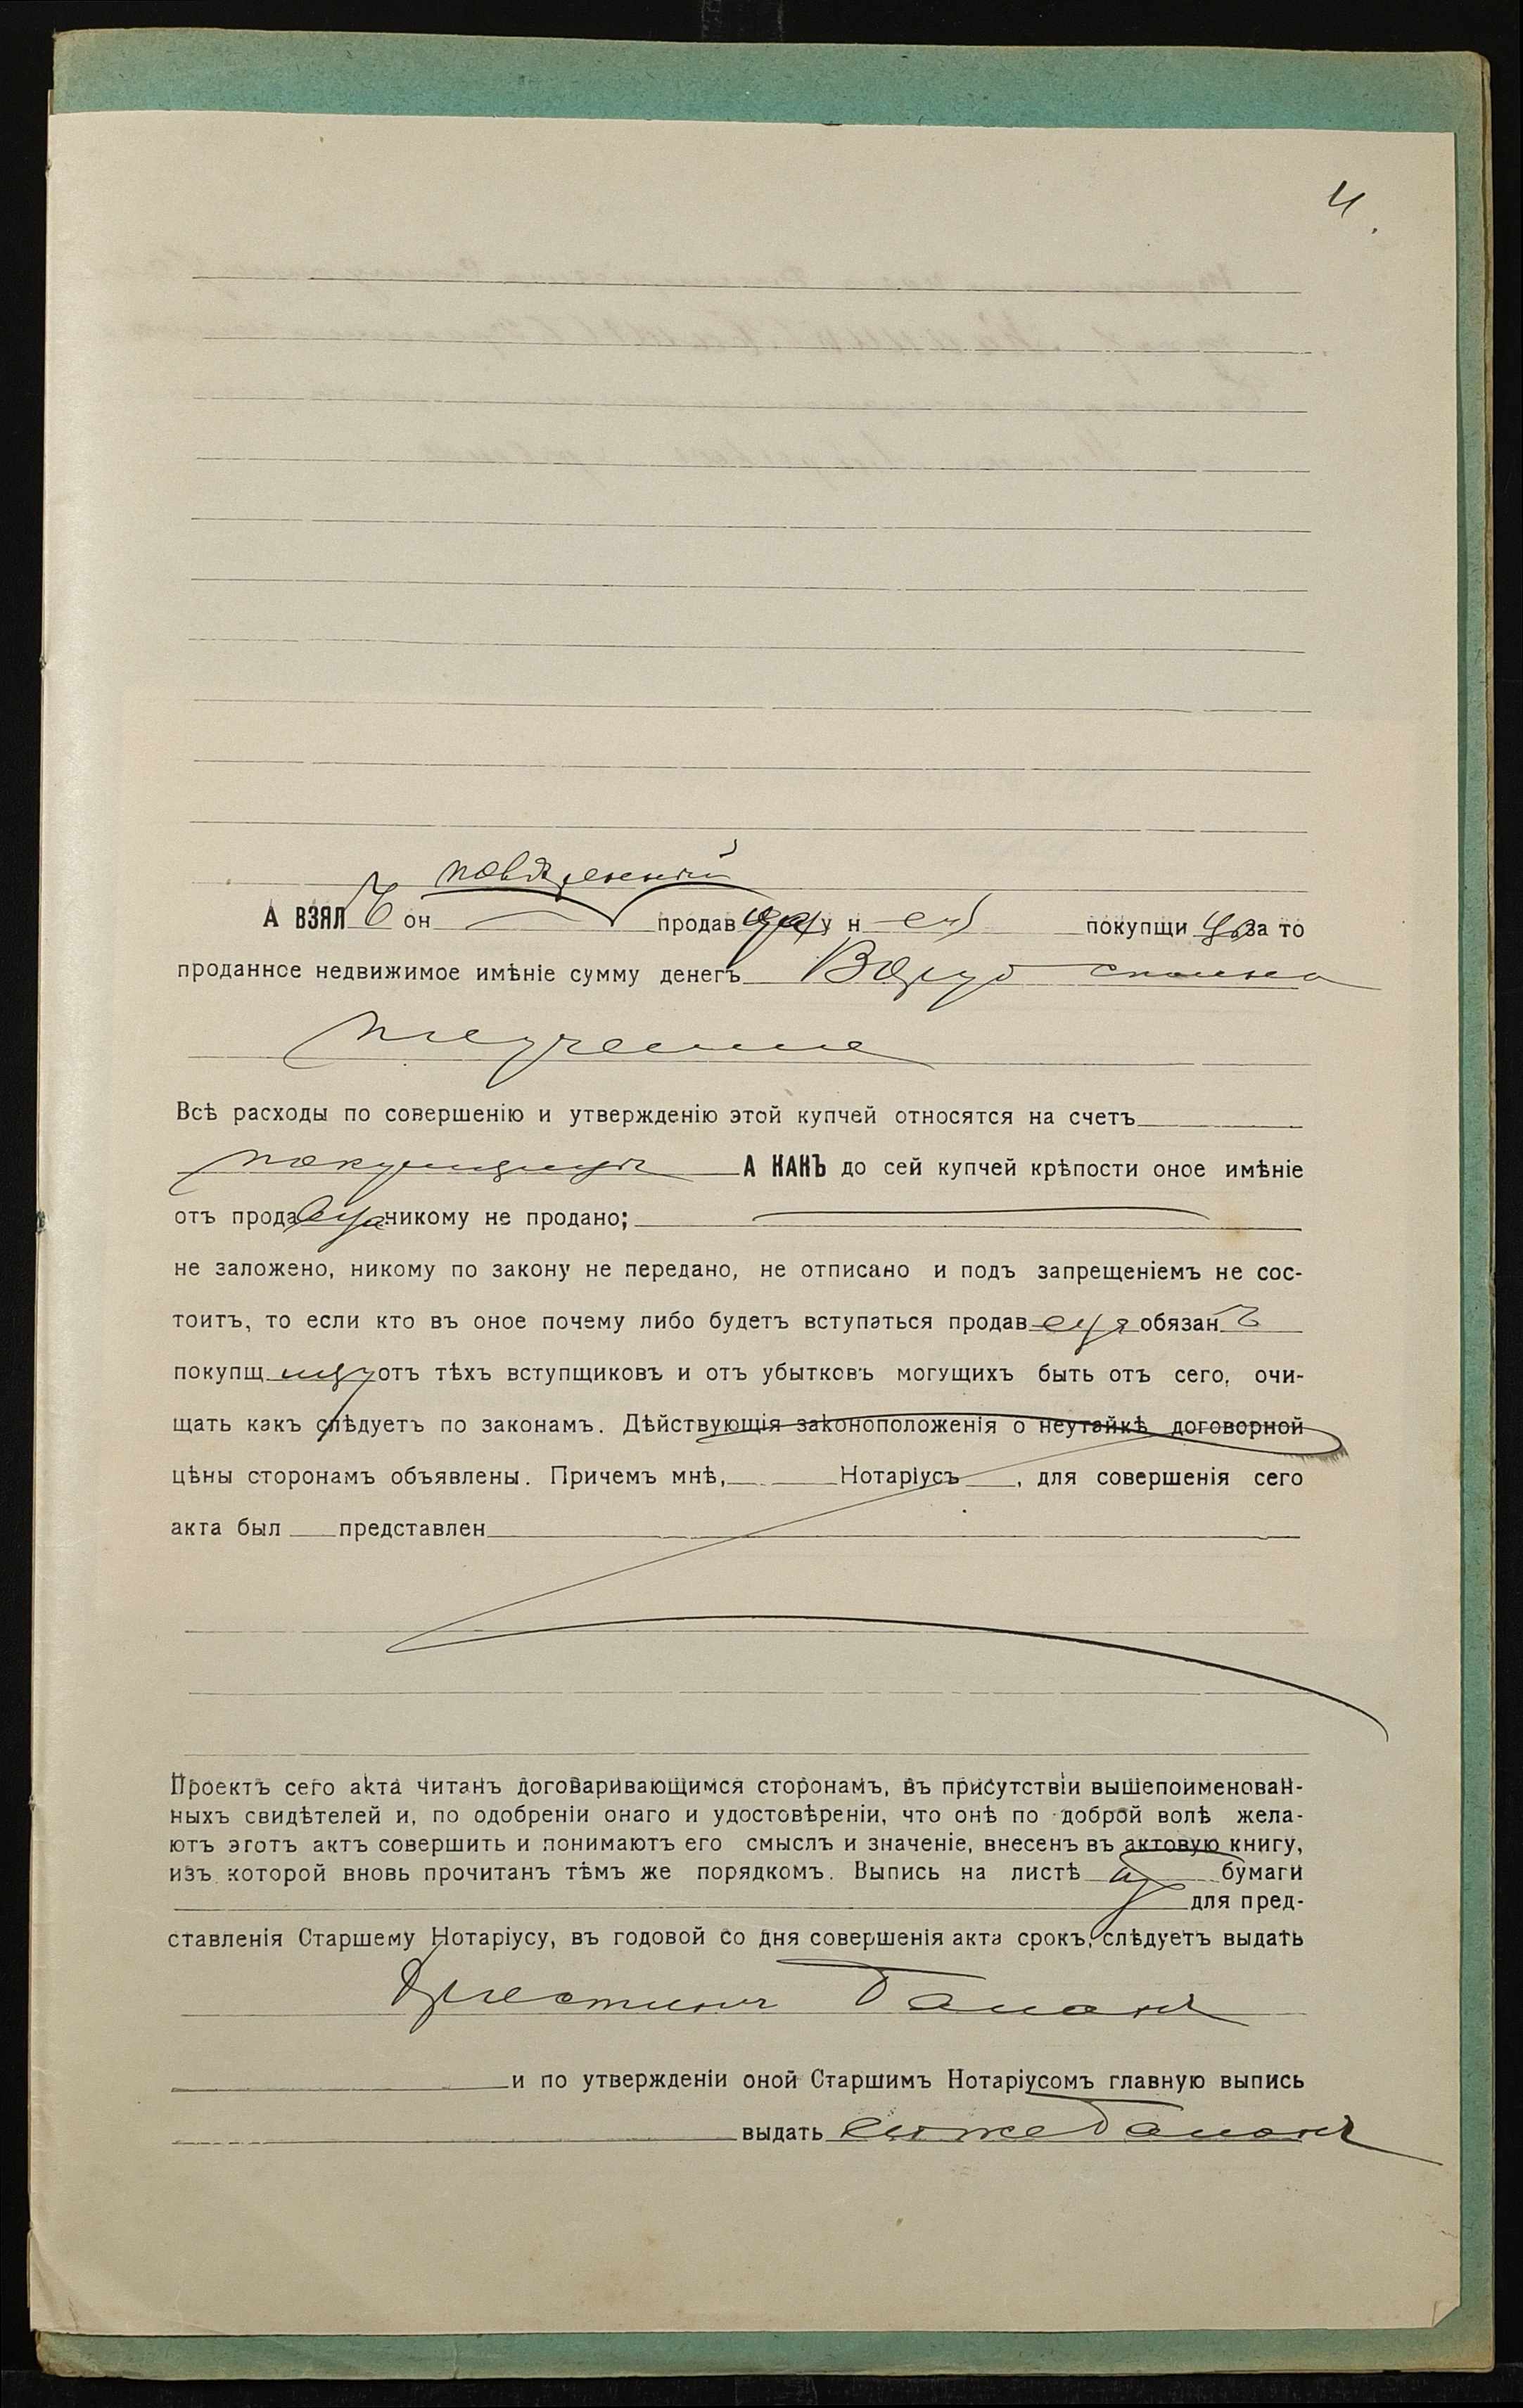 4.
повѣренный
А ВЗЯЛЪ он продавца у н ей покупщицы за то
проданное недвижимое имѣніе сумму денегъ 80 руб сполна
Всѣ расходы по совершенію и утвержденію этой купчей относятся на счетъ
покупщицы А КАКЪ до сей купчей крѣпости оное имѣніе
отъ продавца никому не продано;
не заложено, никому по закону не передано, не отписано и подъ запрещеніемъ не сос-
тоитъ, то если кто въ оное почему либо будетъ вступаться продавецъ обязанъ
покупщицу отъ тѣхъ вступщиковъ и отъ убытковъ могущихъ быть отъ сего, очи-
щать какъ слѣдуетъ по законамъ. Дѣйствующія законоположенія о неутайкѣ договорной
цѣны сторонамъ объявлены. Причемъ мнѣ, Нотаріусъ , для совершенія сего
акта был представлен
Проектъ сего акта читанъ договаривающимся сторонамъ, въ присутствіи вышепоименован-
ныхъ свидѣтелей и, по одобреніи онаго и удостовѣреніи, что онѣ по доброй волѣ жела-
ютъ этотъ актъ совершить и понимаютъ его смыслъ и значеніе, внесенъ въ актовую книгу,
изъ которой вновь прочитанъ тѣмъ же порядкомъ. Выпись на листѣ бумаги
для пред-
ставленія Старшему Нотаріусу, въ годовой со дня совершенія акта срокъ, слѣдуетъ выдать
и по утвержденіи оной Старшимъ Нотаріусомъ главную выпись
выдать ей же